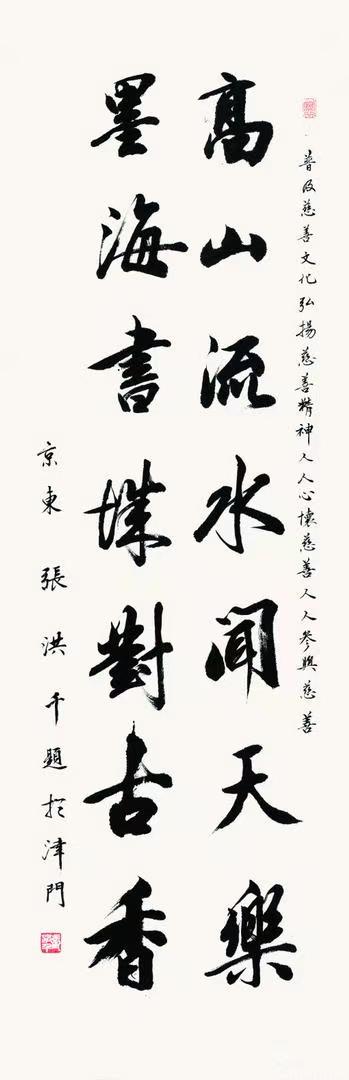 普及慈善文化弘揚慈善精神人人心懷慈善人人參與慈善
高山流水聞天樂
墨海書城對古香
京東張洪千題於津門